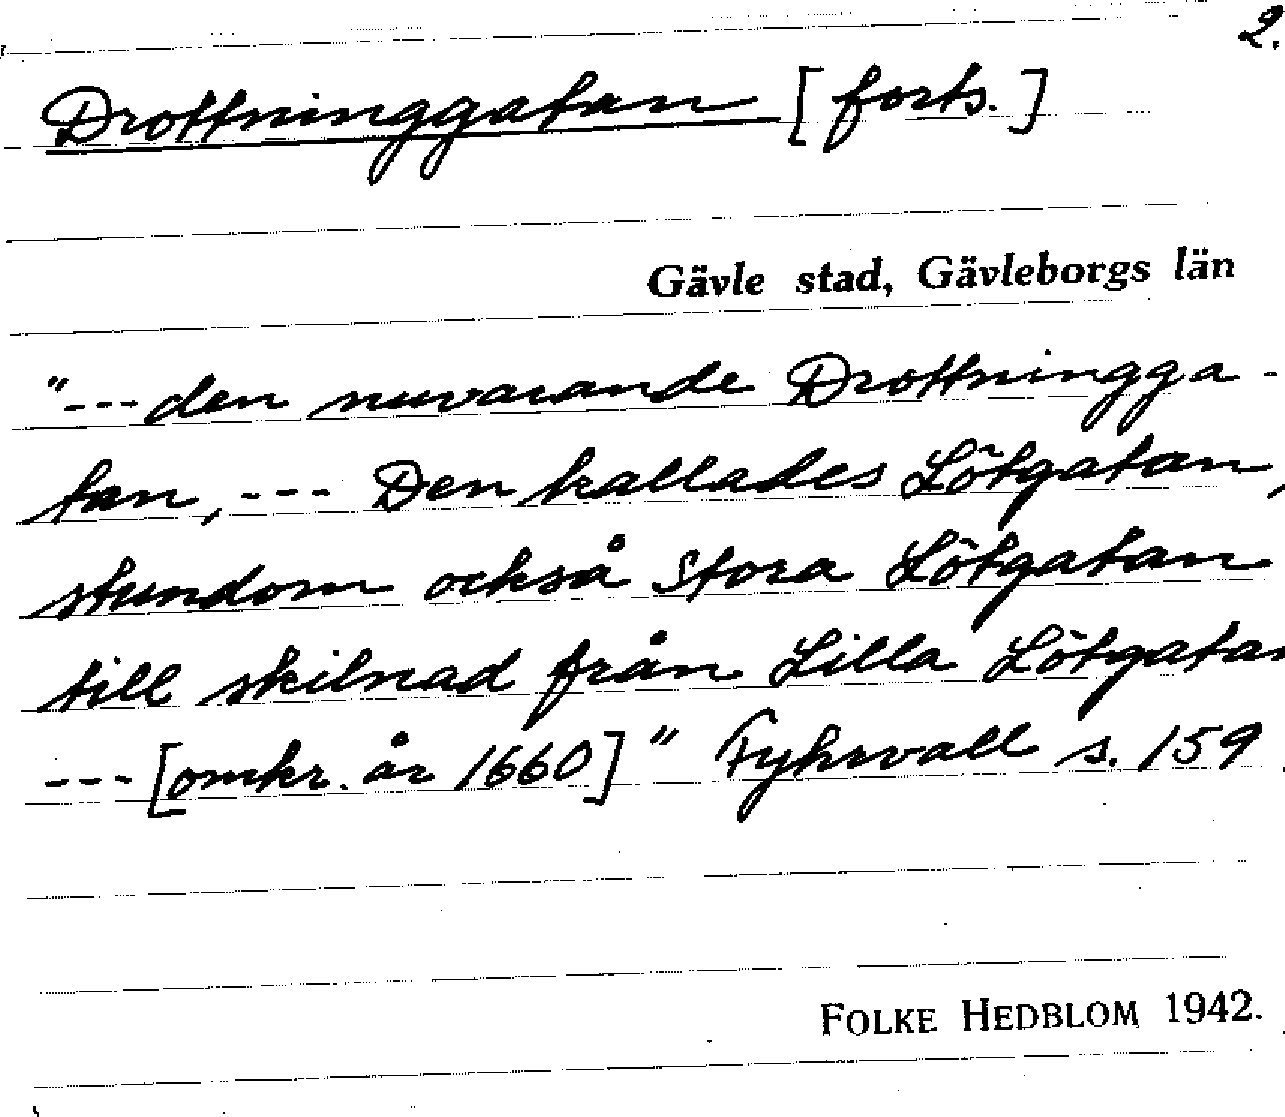 2.
Drottninggatan [forts.]
Gävle stad, Gävleborgs län
"--- den nuvarande Drottningga-
tan, --- Den kallades Lötgatan,
stundom också Stora Lötgatan
till skilnad från Lilla Lötgatan
--- [omkr. år 1660]" Fyhrvall s. 159
FOLKE HEDBLOM 1942.